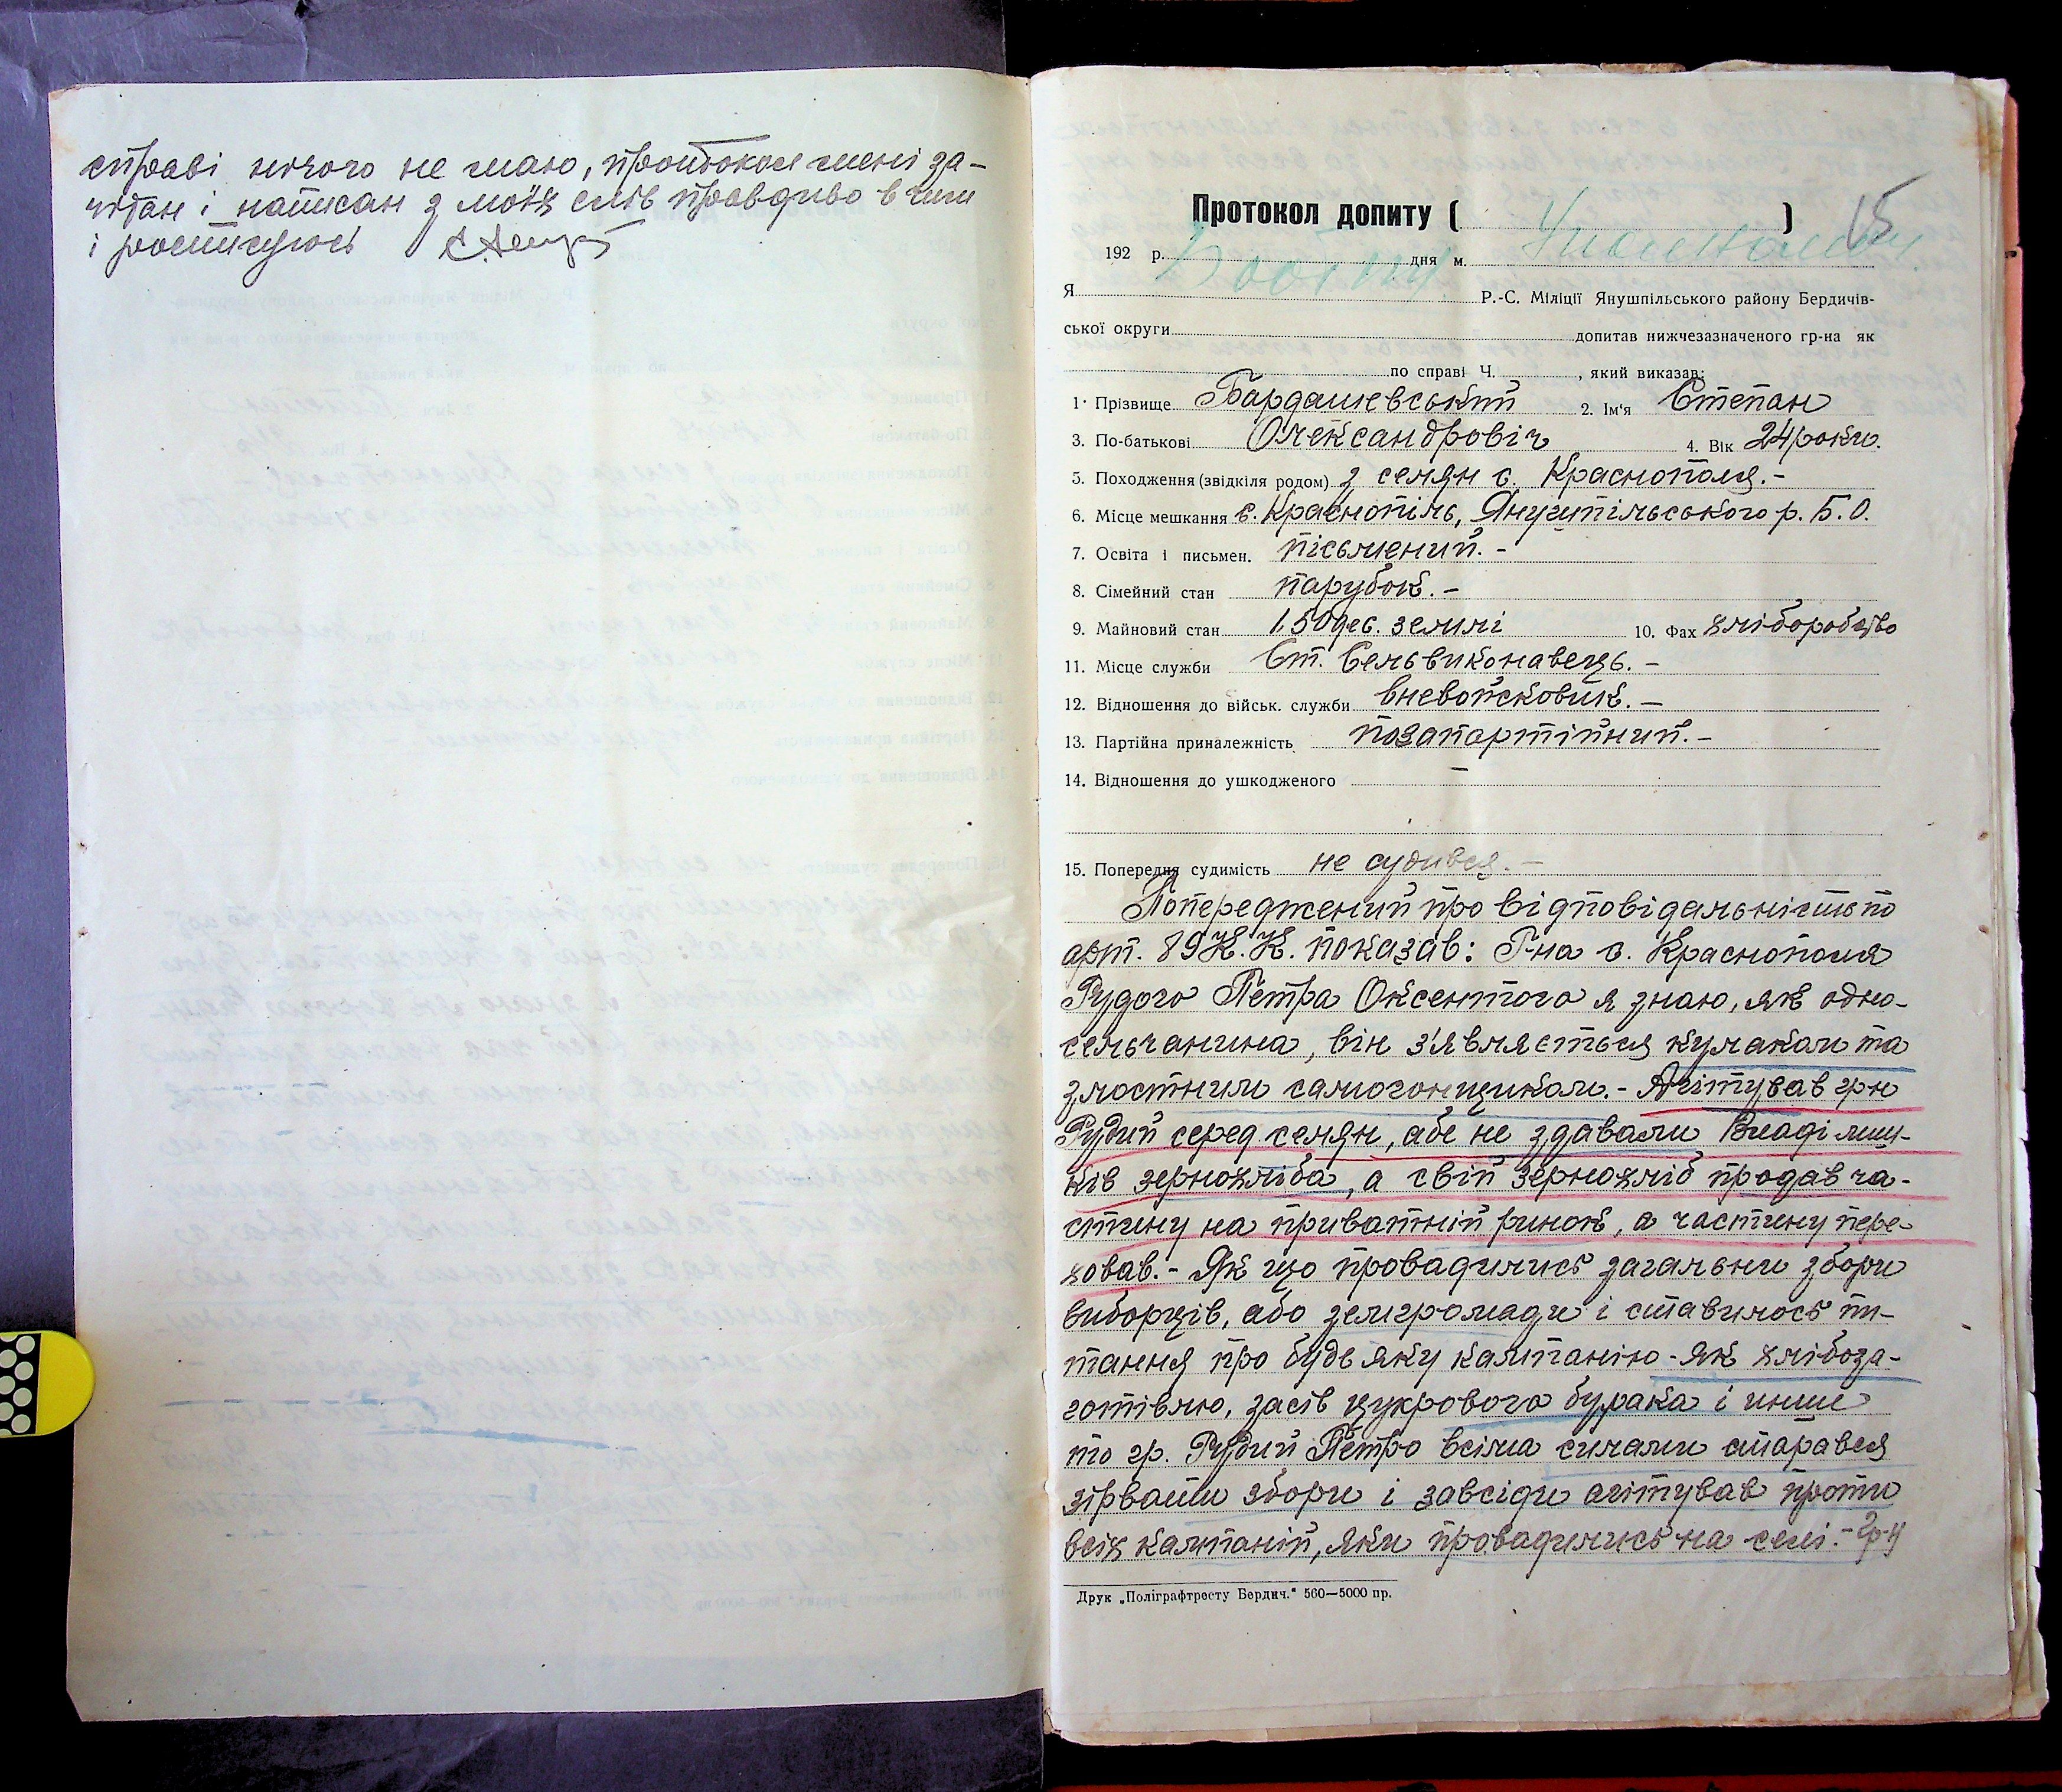 справі нічого не маю, протокол мені за-
читан і написан з моїх слів правдиво в чим
і росписуюсь
Протокол допиту ( )
15
192 р. дня м.
Я Р.-С. Міліції Янушпільського району Бердичів-
ської округи допитав нижчезазначеного гр-на як
по справі Ч. , який виказав:
1. Прізвище Бардашевський 2. Ім'я Степан
3. По-батькові Олександровіч 4. Вік 24 роки.
5. Походження (звідкіля родом) з селян с. Краснополя. -
6. Місце мешкання с. Краснопіль, Янушпільського р. Б.О.
7. Освіта і письмен. пісьмений. -
8. Сімейний стан парубок. -
9. Майновий стан 1,50 дес. землі 10. Фах хліборобство
11. Місце служби Ст. Сельвиконавець. -
12. Відношення до військ. служби вневойсковик. -
13. Партійна приналежність позапартійний. -
14. Відношення до ушкодженого -
15. Попередня судимість не судився. -
Попереджений про відповідальність по
арт. 89 К.К. показав: Г-на с. Краснополя
Рудого Петра Оксентого я знаю, як одно-
сельчанина, він з'являється кулаком та
злостним самогонщиком. - Агітував грн
Рудий серед селян, абе не здавали Владі лиш-
ків зернохліба, а свій зернохліб продав ча-
стину на приватній ринок, а частину пере-
ховав. - Як що провадились загальни збори
виборців, або земгромади і ставилось пи-
тання про будь яку кампанію - як хлібоза-
готівлю, засів цукрового бурака і инши
то гр. Рудий Петро всіма силами старався
зірвати збори і завсіди агітував проти
всіх кампаній, яки провадились на селі. - Гр-н
Друк „Поліграфтресту Бердич." 560—5000 пр.